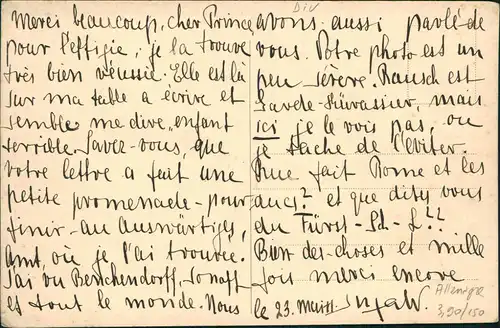 Merci beaucoup, cher Prince
pour l'effigie; je la trouve
très bien réussie. Elle est là
sur ma table a écrire et
semble me dire „enfant
terrible. Savez-vous, que
votre lettre a fait une
petite promenade - pour
finir - au Auswärtiges,
Amt, où je l'ai trouvée.
J'ai vu Benckendorff,
et tout le monde. Nous
avons aussi parlé de
vous. Votre photo est un
peu sévère. Rausch est
Garde-Küras­sier, mais
ici je le vois pas, ou
je tache de l'éviter.
Que fait Rome et les
? et que dites vous
du Fürst - Sch - L??
Bien des choses et mille
fois merci encore
le 23.
Div
Allemagne
3,90/150